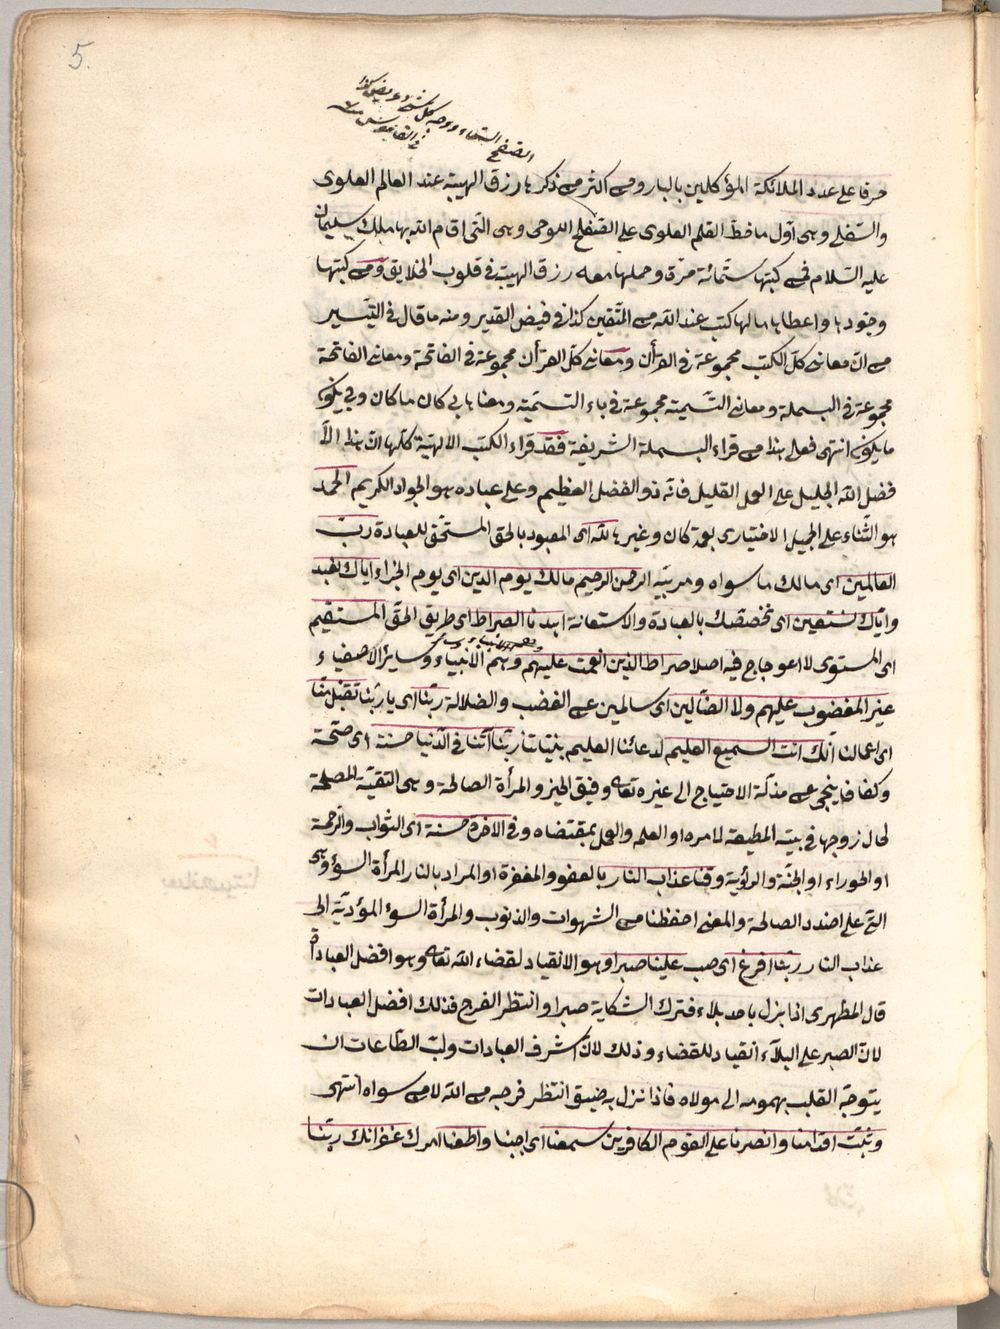 5.
الصفح السماء ووجه كل شئ عريض كذا
في القاموس منه
حرفا على عدد الملائكة المؤكلين بالنار ومن اكثر من ذكرها رزق الهيبة عند العالم العلوى
والسفلى وهى اول ما خط القلم العلوى على الصفح اللوحى وهى التى اقام الله بها ملك سليمان
عليه السلام فمن كبتها ستمائة مرة وحملها معه رزق الهيبة فى قلوب الخلايق ومن كبتها
وجودها واعطاها مالها كتب عند الله من المتقين كذا فى فيض القدير ومنه ما قال فى التيسير
من ان معانى كل الكتب مجموعة فى القرأن ومعانى كل القرأن مجموعة فى الفاتحة ومعانى الفاتحة
مجموعة فى البسملة ومعانى التسمية مجموعة فى باء التسمية ومعناها بى كان ما كان وبى يكون
ما يكون انتهى فعلى هذا من قراء البسملة الشريفة فقد قراء الكتب الالهية كلها ان هذا الا
فضل الله الجليل على العمل القليل فانه ذو الفضل العظيم وعلى عباده هو الجواد الكريم الحمد
هو الثناء على الجميل الاختيارى نعمة كان وغيرها لله اى المعبود بالحق المستحق للعبادة رب
العالمين اى مالك ما سواه ومربيه الرحمن الرحيم مالك يوم الدين اى يوم الجزاء اياك نعبد
واياك نستعين اى نخصصك بالعبادة والاستعانة اهدنا الصراط اى طريق الحق المستقيم
اى المستوى لا اعوجاج فيه اصلا صراط الذين انعمت عليهم وهم الانبياء وساير الاصفياء
غير المغضوب عليهم ولا الضالين اى سالمين عن الغضب والضلالة ربنا اى يا ربنا تقبل منا
اى اعمالنا انك انت السميع العليم لدعائنا العليم بنياتنا ربنا آتنا فى الدنيا حسنة اى صحة
وكفافا ينجى عن مذلة الاحتياج الى غيره تعالى وفيق الخير والمرأة الصالحة وهى التقية المصلحة
لحال زوجها فى بيته المطيعة لامره او العلم والعمل بمقتضاه وفى الاخرة حسنة اى الثواب والرحمة
او الحوراء او الجنة والرؤية وقنا عذاب النار بالعفو والمغفرة او المراد بالنار المرأة السوء وهى
التى على اضدد الصالحة والمعنى احفظنا من الشهوات والذنوب والمرأة السوء المؤدية الى
عذاب النار ربنا افرغ اى صب علينا صبرا وهو الانقياد لقضاء الله تعالى وهو افضل العبادة
قال المظهرى اذا نزل باحد بلاء فترك الشكاية صبرا وانتظر الفرج فذلك افضل العبادات
لان الصبر على البلاء انقياد للقضاء وذلك لان اشرف العبادات ولب الطاعات ان
يتوجه القلب بهمومه الى مولاه فاذا نزل به ضيق انتظر فرجه من الله لا من سواه انتهى
وثبت اقدامنا وانصرنا على القوم الكافرين سمعنا اى اجبنا واطعنا امرك غفرانك ربنا